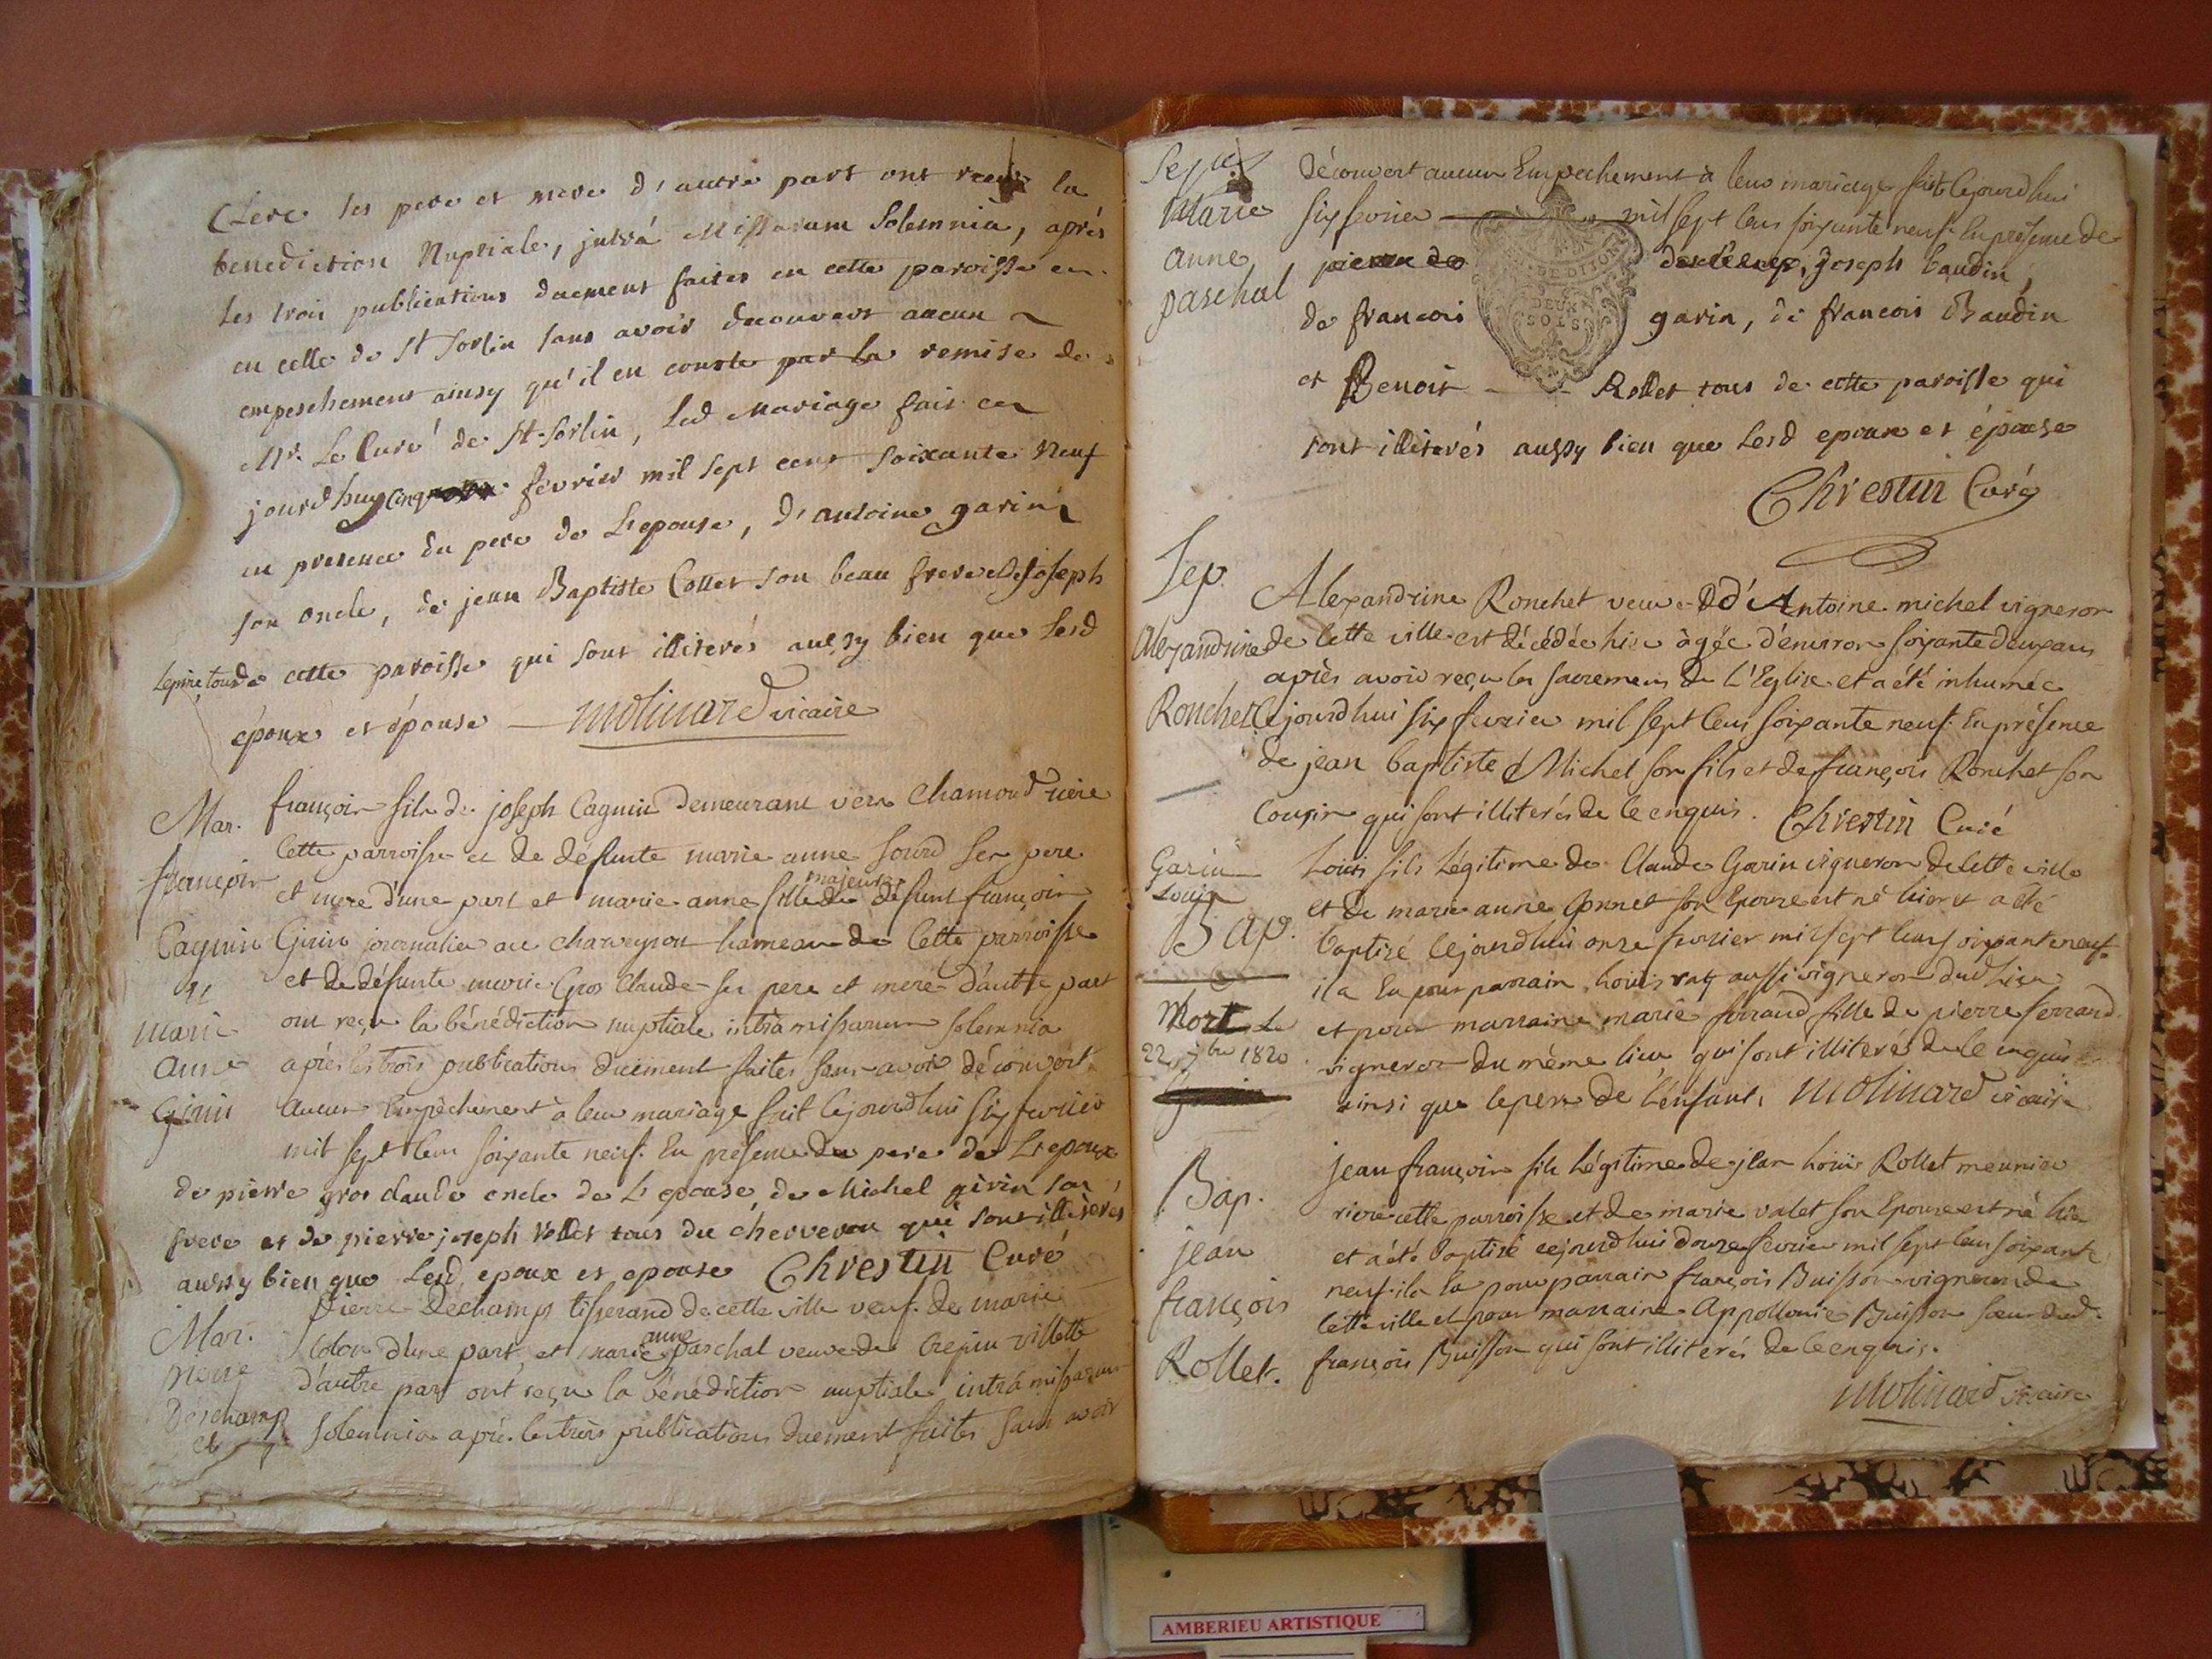 Clerc ses pere et mere d'autre part ont recu la
benediction Nuptiale, intrá Missarum Solemnia, aprés
les trois publications duement faites en cette paroisse en
en celle de St Sorlin sans avoir decouvert aucun
empeschement ainsy qu'il en conste par la remise de
Mr. Le Curé de St Sorlin, Led Mariage fait ce
jourdhuy cinq février mil sept cent soixante Neuf
en presence du pere de L'epouse, d'antoine garin
son oncle, de jean Baptiste Collet son beau frere et de joseph
Lepine tous de cette paroisse qui sont illiterés aussy bien que Lesd
époux et épouse — Molinard vicaire
Mar.
françois
Cagnin
et
marie
anne
Girin
françois fils de joseph Cagnin demeurant vers Chamoud riere
cette parroisse et de défunte marie anne Sourd ses pere
et mere d'une part et marie anne fille majeure de defunt françois
Girin journalier au charveyron hameau de cette parroisse
et de défunte marie Gros Claude ses pere et mere d'autre part
ont reçu la bénédiction nuptiale intrà missarum solemnia
après les trois publications duement faites sans avoir découvert
aucun Empêchement à leur mariage fait cejourdhui six fevrier
mil sept cens soixante neuf. En présence du pere de L'epoux
de pierre gros claude oncle de L'epouse, de Michel girin son
frere et de pierre joseph rollet tous du cherveron qui sont illiterés
aussy bien que Lesd epoux et epouse Chrestin Curé
Mar.
pierre
Deschamp
et
Pierre Dechamps tisserand de cette ville veuf de marie
Colon d'une part, et marie anne paschal veuve de Crepin villette
d'autre part ont reçu la bénédiction nuptiale intrà missarum
solemnia après les trois publications duement faites sans avoir
Marie
anne
paschal
Découvert aucun Empechement à leur mariage fait cejourdhui
six fevrier mil sept cens soixante neuf. En présence de
pierre de deschamp, Joseph baudin,
de francois garin, de francois Baudin
et Benoit Rollet tous de cette paroisse qui
sont illiterés aussy bien que Lesd epoux et épouse
Chrestin Curé
DE DIJON
DEUX
SOLS
Sep.
Alexandrine
Ronchet
Alexandrine Ronchet veuve d'Antoine michel vigneron
de cette ville est décédée hier âgée d'environ soixante deux ans
après avoir reçu les sacremens de L'Eglise et a été inhumée
cejourdhui six fevrier mil sept cens soixante neuf. En présence
de jean baptiste Michel son fils et de françois Ronchet son
cousin qui sont illiterés de ce enquis. Chrestin Curé
Garin
Louis
Bap.
Mort Le
22 7bre 1820
Louis fils Légitime de Claude Garin vigneron de cette ville
et de marie anne son Epouse est né hier et a été
baptisé cejourdhui onze fevrier mil sept cens soixante neuf.
il a Eu pour parrain Louis aussi vigneron dud Lieu
et pour marraine marie ferrand fille de pierre ferrand
vigneron du même lieu qui sont illiterés de ce enquis
ainsi que le pere de l'enfant. Molinard vicaire
Bap.
jean
françois
Rollet.
jean françois fils Légitime de jean Louis Rollet meunier
riere cette parroisse et de marie valet son Epouse est né hier
et a été baptisé cejourdhui douze fevrier mil sept cens soixante
neuf. il a Eu pour parrain françois Buisson vigneron de
cette ville et pour marraine Appollonie Buisson soeur dud.
françois Buisson qui sont illiterés de ce enquis.
Molinard vicaire
AMBERIEU ARTISTIQUE